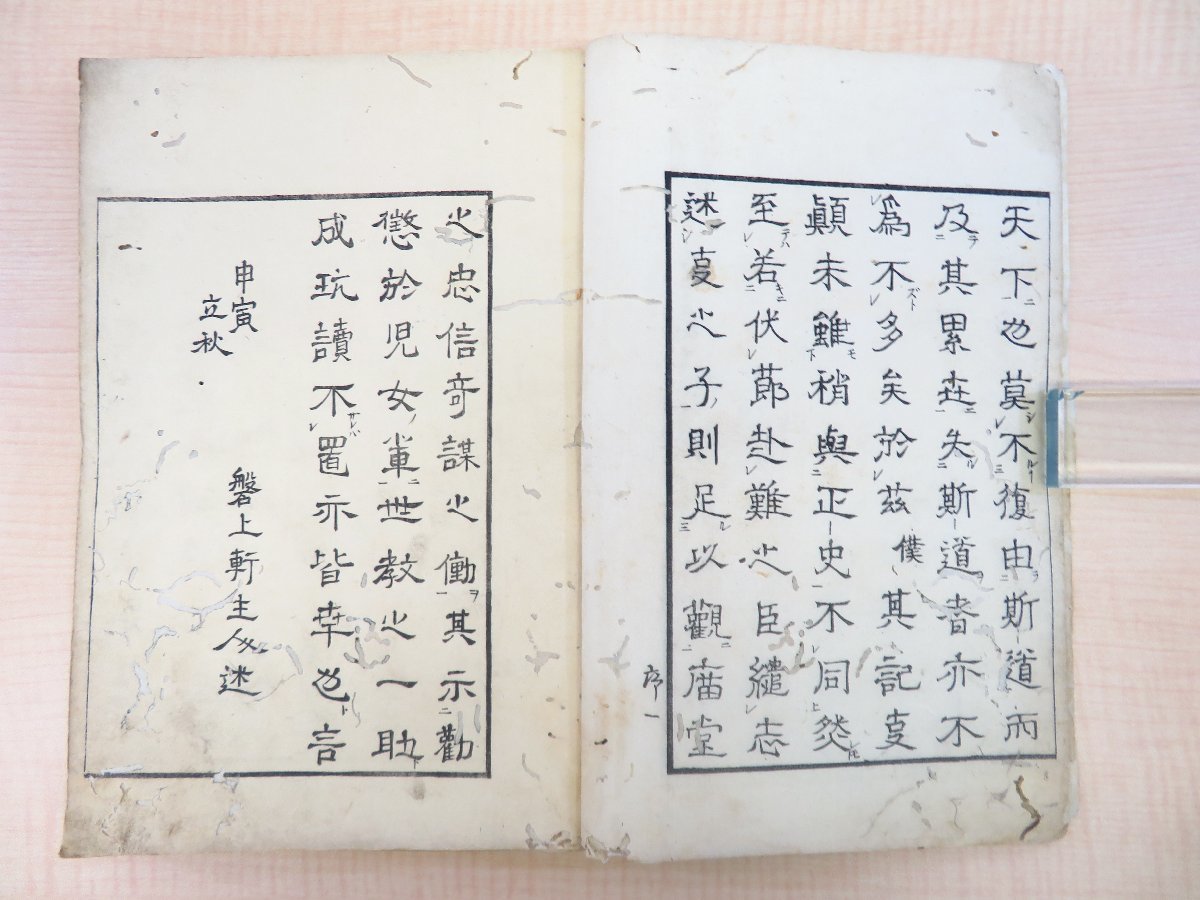 天下也莫不復由斯道而
及其累世失斯道者亦不
為不多矣於茲僕其記叓
顛末雖稍與正史不同然
至若伏莭赴難之臣繾志
述叓之子則足以觀庿堂
序一
之忠信奇謀之働其示勸
懲於児女軰世教之一助
成玩讀不置亦皆幸也言
甲寅
立秋
磐上軒主人述